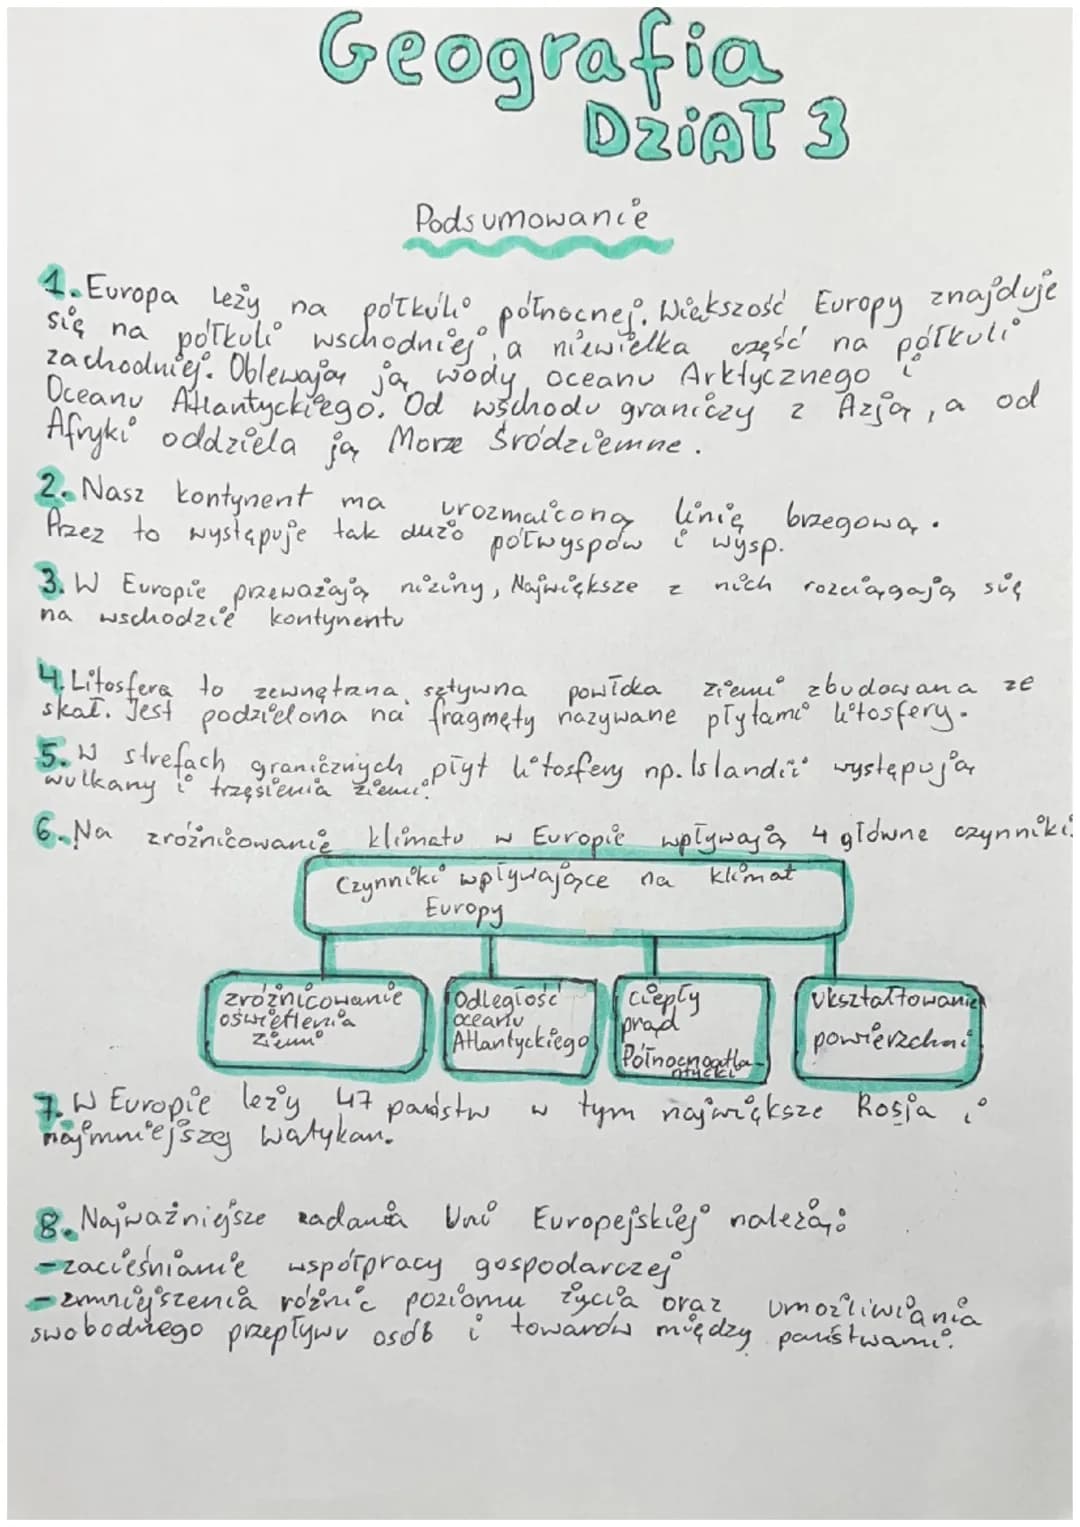 Geografia
DZiAŁ 3
Podsumowanie
1. Europa leży na półkuli północnej. Większość Europy znajduje
się na półkuli wschodniej, a niewielka część na półkuli
zachodniej. Oblewają ją wody oceanu Arktycznego i
Oceanu Atlantyckiego. Od wschodu graniczy z Azją, a od
Afryki oddziela ją Morze Śródziemne.
2. Nasz kontynent ma urozmaiconą linię brzegową.
Przez to występuje tak dużo półwyspów i wysp.
3. W Europie przeważają niziny, Największe z nich rozciągają się
na wschodzie kontynentu
4. Litosfera to zewnętrzna, sztywna powłoka ziemi zbudowana ze
skał. Jest podzielona na fragmęty nazywane płytami litosfery.
5. W strefach granicznych płyt litosfery np. Islandii występują
wulkany i trzęsienia ziemi.
6. Na zróżnicowanie klimatu w Europie wpływają 4 główne czynniki:
Czynniki wpływające na klimat
Europy
zróżnicowanie
oświetlenia
Ziemi
Odległość
oceanu
Atlantyckiego
ciepły
prąd
Północnoatla-
ntycki
Ukształtowanie
powierzchni
7. W Europie leży 47 państw w tym największe Rosja i
najmniejszej Watykan.
8. Najważniejsze zadania Uni Europejskiej należą:
-zacieśnianie współpracy gospodarczej
-zmniejszenia różnic poziomu życia oraz umożliwiania
swobodnego przepływu osób i towarów między państwami.